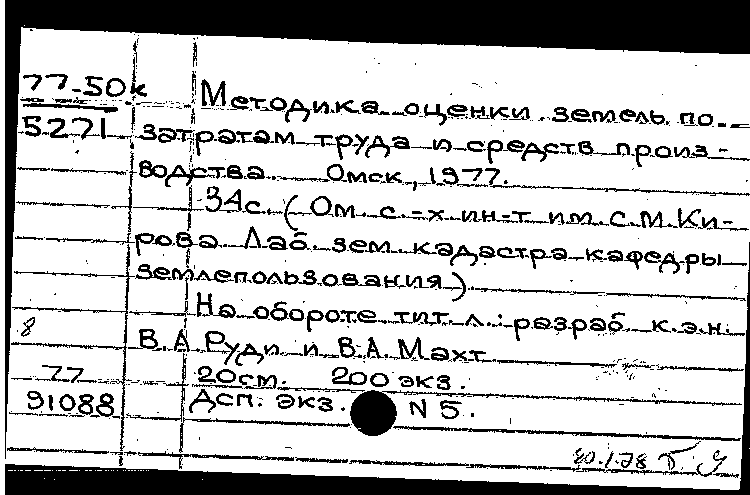 77-50к Методика оценки земель по
5271 затратам труда и средств произ-
водства. Омск, 1977.
34с. (Ом. с.-х ин-т им. С.М.Ки-
рова Лаб. зем. кадастра кафедры
землепользования)
На обороте тит. л.: разраб. к.э.н.
8 В.А Руди и В.А.Махт
77 20см. 200 экз.
91088 Дсп. экз. N 5.
20.1.78